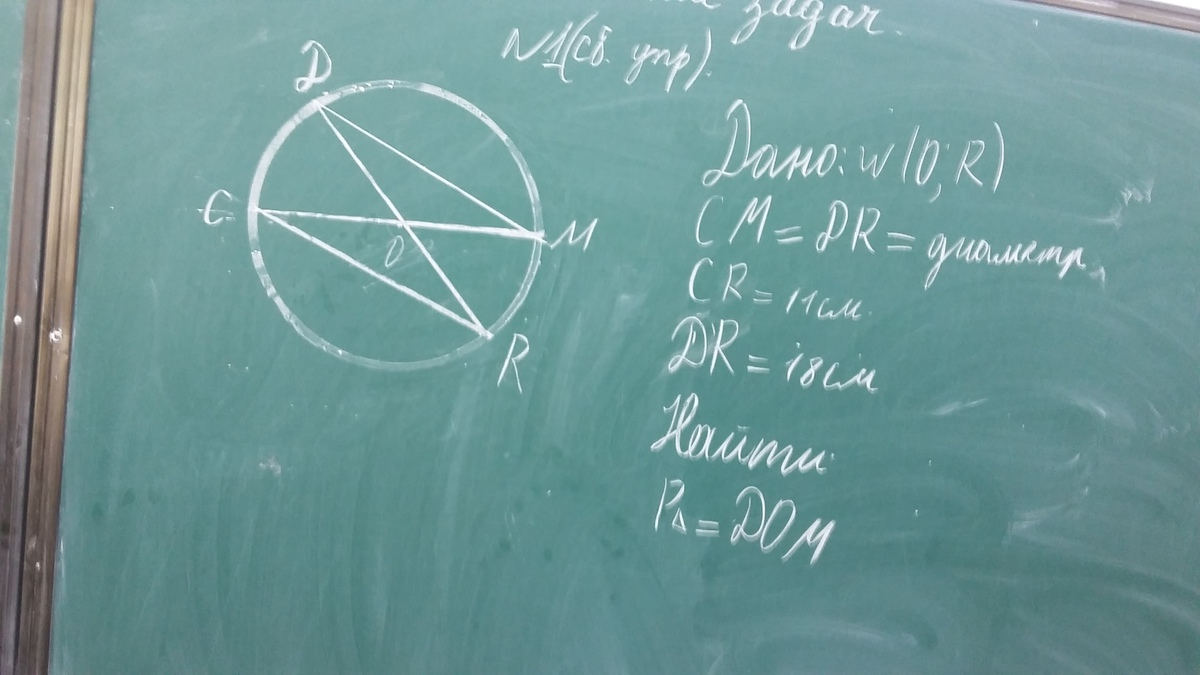 задач.
N1(сб. упр).
D
C
O
M
R
Дано: w(O; R)
CM = DR = диаметр,
CR = 11 см.
DR = 18 см
Найти:
P△ = DOM